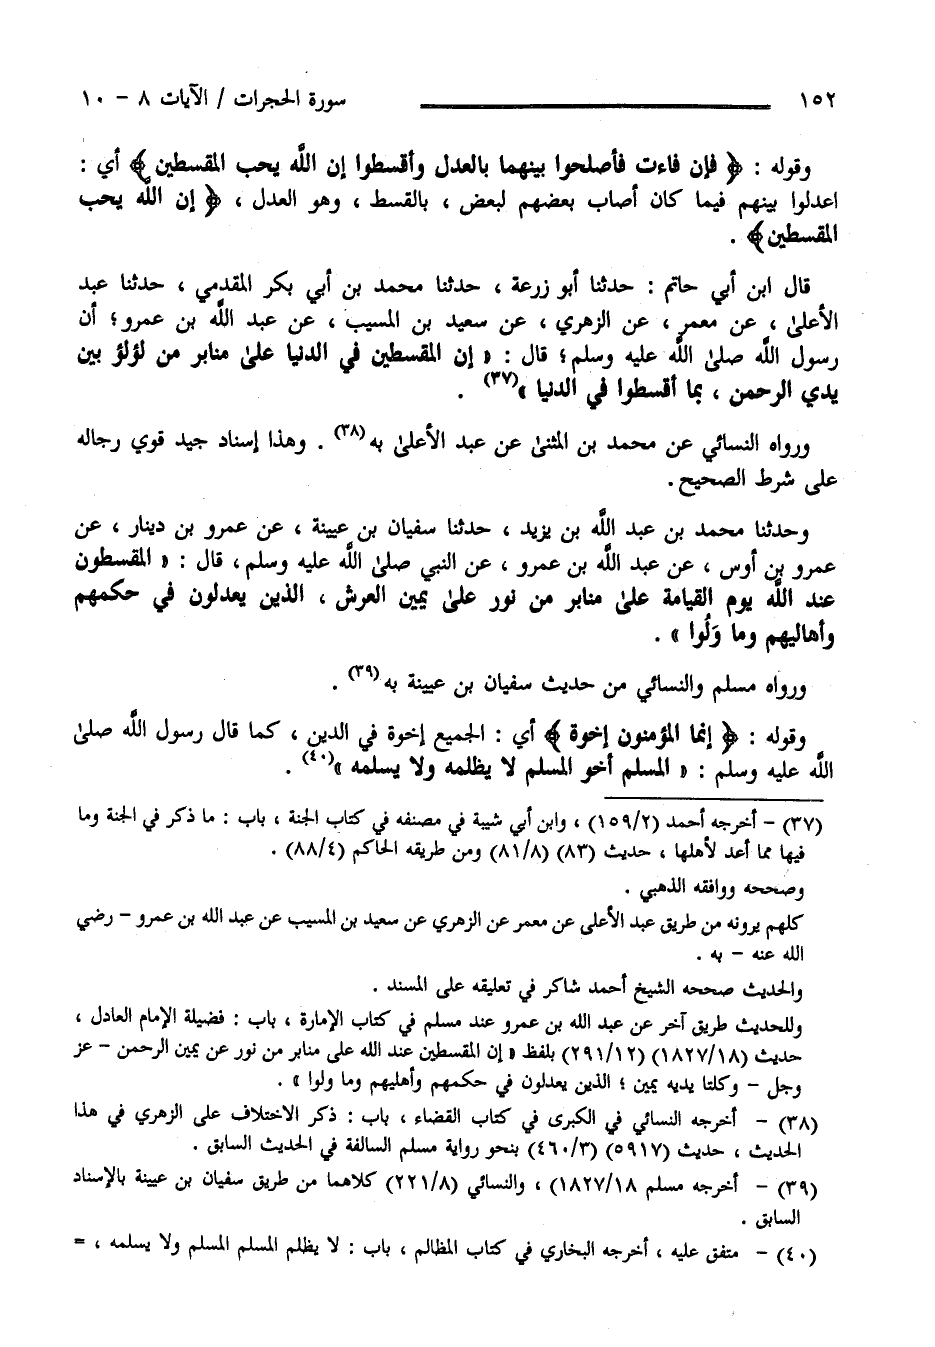 ١٥٢ سورة الحجرات / الآيات ٨ - ١٠
وقوله : ﴿ فإن فاءت فأصلحوا بينهما بالعدل وأقسطوا إن الله يحب المقسطين ﴾ أي :
اعدلوا بينهم فيما كان أصاب بعضهم لبعض ، بالقسط ، وهو العدل ، ﴿ إن الله يحب
المقسطين﴾ .
قال ابن أبي حاتم : حدثنا أبو زرعة ، حدثنا محمد بن أبي بكر المقدمي ، حدثنا عبد
الأعلىٰ ، عن معمر ، عن الزهري ، عن سعيد بن المسيب ، عن عبد الله بن عمرو؛ أن
رسول الله صلىٰ الله عليه وسلم؛ قال : « إن المقسطين في الدنيا علىٰ منابر من لؤلؤ بين
يدي الرحمن ، بما أقسطوا في الدنيا »(٣٧) .
ورواه النسائي عن محمد بن المثنىٰ عن عبد الأعلىٰ به(٣٨) . وهذا إسناد جيد قوي رجاله
على شرط الصحيح .
وحدثنا محمد بن عبد الله بن يزيد ، حدثنا سفيان بن عيينة ، عن عمرو بن دينار ، عن
عمرو بن أوس ، عن عبد الله بن عمرو ، عن النبي صلىٰ الله عليه وسلم ، قال : « المقسطون
عند الله يوم القيامة علىٰ منابر من نور علىٰ يمين العرش ، الذين يعدلون في حكمهم
وأهاليهم وما وَلُوا » .
ورواه مسلم والنسائي من حديث سفيان بن عيينة به(٣٩) .
وقوله : ﴿ إنما المؤمنون إخوة ﴾ أي : الجميع إخوة في الدين ، كما قال رسول الله صلىٰ
الله عليه وسلم : « المسلم أخو المسلم لا يظلمه ولا يسلمه »(٤٠) .
(٣٧) - أخرجه أحمد (١٥٩/٢) ، وابن أبي شيبة في مصنفه في كتاب الجنة ، باب : ما ذكر في الجنة وما
فيها مما أعد لأهلها ، حديث (٨٣) (٨١/٨) ومن طريقه الحاكم (٨٨/٤) .
وصححه ووافقه الذهبي .
كلهم يرونه من طريق عبد الأعلى عن معمر عن الزهري عن سعيد بن المسيب عن عبد الله بن عمرو - رضي
الله عنه - به .
والحديث صححه الشيخ أحمد شاكر في تعليقه على المسند .
وللحديث طريق آخر عن عبد الله بن عمرو عند مسلم في كتاب الإمارة ، باب : فضيلة الإمام العادل ،
حديث (١٨٢٧/١٨) (٢٩١/١٢) بلفظ « إن المقسطين عند الله على منابر من نور عن يمين الرحمن - عز
وجل - وكلتا يديه يمين ؛ الذين يعدلون في حكمهم وأهليهم وما ولوا » .
(٣٨) - أخرجه النسائي في الكبرى في كتاب القضاء ، باب : ذكر الاختلاف على الزهري في هذا
الحديث ، حديث (٥٩١٧) (٤٦٠/٣) بنحو رواية مسلم السالفة في الحديث السابق .
(٣٩) - أخرجه مسلم ١٨٢٧/١٨) ، والنسائي (٢٢١/٨) كلاهما من طريق سفيان بن عيينة بالإسناد
السابق .
(٤٠) - متفق عليه ، أخرجه البخاري في كتاب المظالم ، باب : لا يظلم المسلم المسلم ولا يسلمه ، =